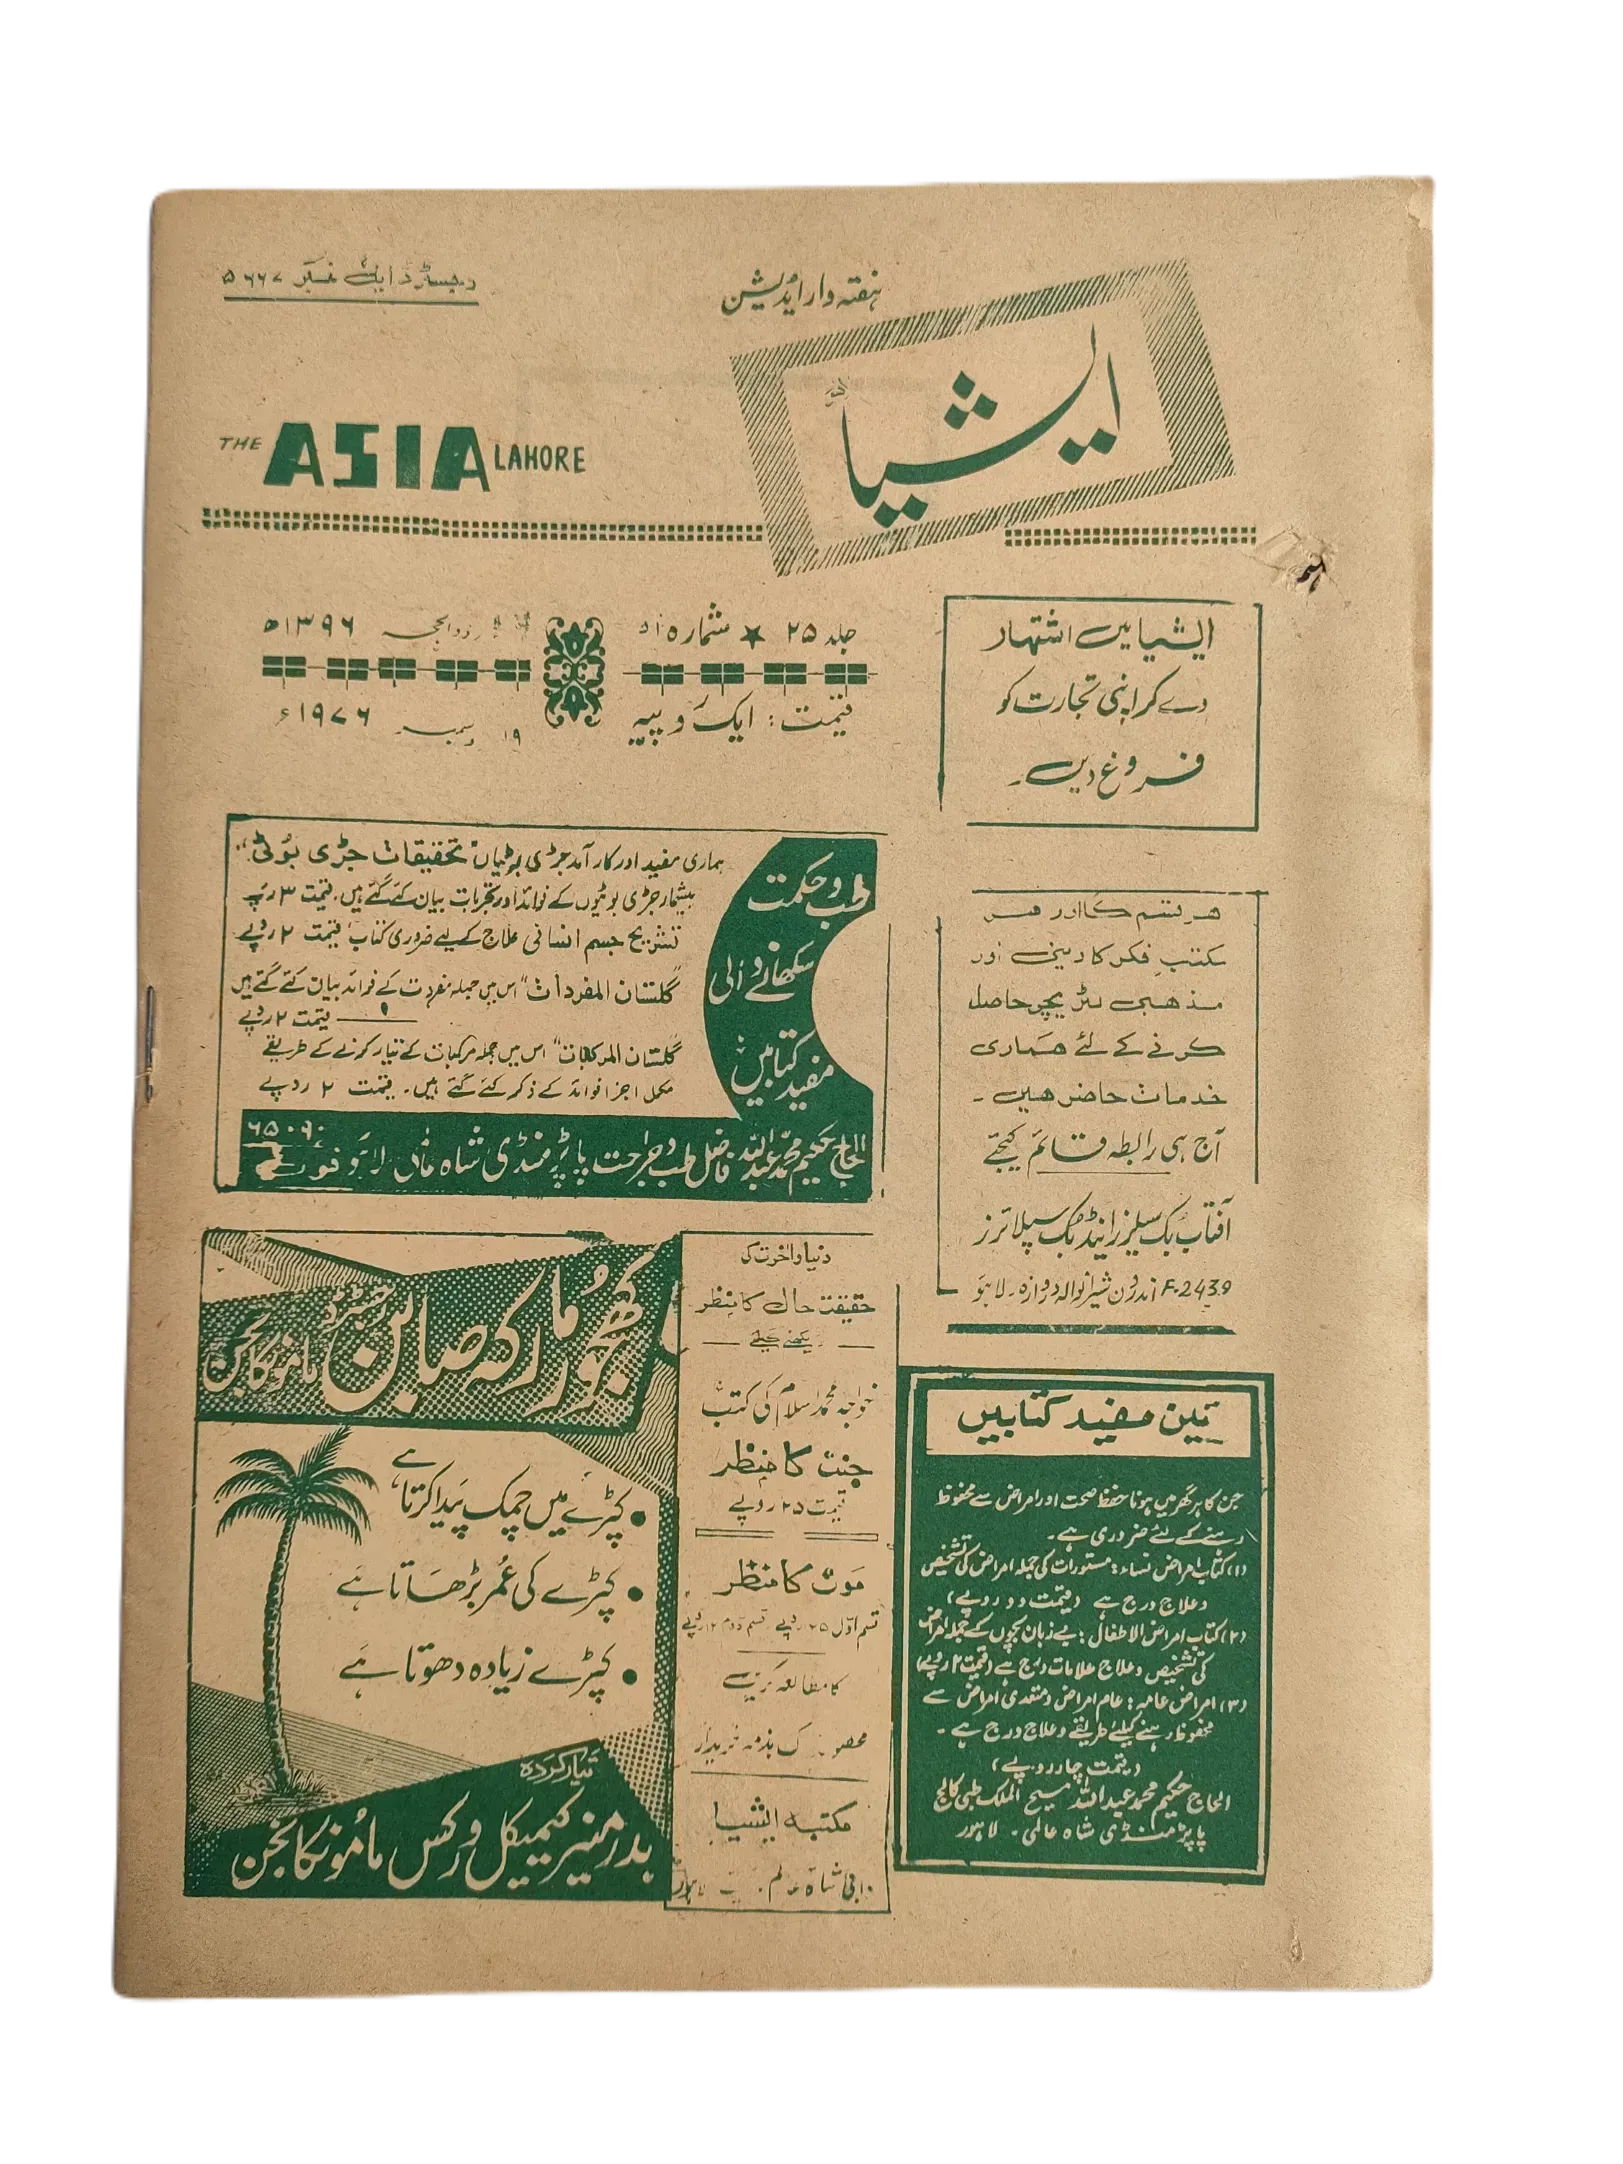 رجسٹرڈ ایل نمبر ۵۶۶۷
ہفتہ وار ایڈیشن
ایشیا
THE ASIA LAHORE
جلد ۲۵ ★ شمارہ ۵۱
ذوالحجہ ۱۳۹۶ھ
قیمت: ایک روپیہ
۱۹ دسمبر ۱۹۷۶ء
ایشیا میں اشتہار
دے کر اپنی تجارت کو
فروغ دیں۔
طب و حکمت
سکھانے والی
مفید کتابیں
ہماری مفید اور کارآمد جڑی بوٹیاں "تحقیقات جڑی بوٹی"
بیشمار جڑی بوٹیوں کے فوائد اور تجربات بیان کئے گئے ہیں، قیمت ۳ روپے
تشریح جسم انسانی علاج کے لیے ضروری کتاب قیمت ۲ روپے
"گلستان المفردات" اس میں جملہ مفردات کے فوائد بیان کئے گئے ہیں
قیمت ۲ روپے
"گلستان المرکبات" اس میں جملہ مرکبات کے تیار کرنے کے طریقے
مکمل اجزا فوائد کے ذکر کئے گئے ہیں۔ قیمت ۲ روپے
الحاج حکیم محمد عبداللہ فاضل طب و جراحت پاپڑ منڈی شاہ عالمی لاہور فون
۶۵۰۶۰
ہر قسم کا اور ہر
مکتب فکر کا دینی اور
مذہبی لٹریچر حاصل
کرنے کے لئے ہماری
خدمات حاضر ہیں۔
آج ہی رابطہ قائم کیجئے
آفتاب بک سیلرز اینڈ بک سپلائرز
F-2439 اندرون شیرانوالہ دروازہ۔ لاہور
کھجور مارکہ صابن
رجسٹرڈ
مامونکانجن
کپڑے میں چمک پیدا کرتا ہے
کپڑے کی عمر بڑھاتا ہے
کپڑے زیادہ دھوتا ہے
تیار کردہ
بدر منیر کیمیکل ورکس مامونکانجن
دنیا و آخرت کی
حقیقت حال کا منظر
دیکھنے کیلئے
خواجہ محمد اسلام کی کتب
جنت کا منظر
قیمت ۲۵ روپے
موت کا منظر
قسم اول ۲۵ روپے قسم دوم ۱۲ روپے
کا مطالعہ کریں
محصول ڈاک بذمہ خریدار
مکتبہ ایشیا
شاہ عالم لاہور
تین مفید کتابیں
جن کا ہر گھر میں ہونا حفظ صحت اور امراض سے محفوظ
رہنے کے لئے ضروری ہے۔
(۱) کتاب امراض نساء: مستورات کی جملہ امراض کی تشخیص
و علاج درج ہے (قیمت دو روپے)
(۲) کتاب امراض الاطفال: بے زبان بچوں کے جملہ امراض
کی تشخیص و علاج علامات درج ہے (قیمت ۲ روپے)
(۳) امراض عامہ: عام امراض و متعدی امراض سے
محفوظ رہنے کیلئے طریقے و علاج درج ہے۔
(قیمت چار روپے)
الحاج حکیم محمد عبداللہ مسیح الملک طبی کالج
پاپڑ منڈی شاہ عالمی۔ لاہور